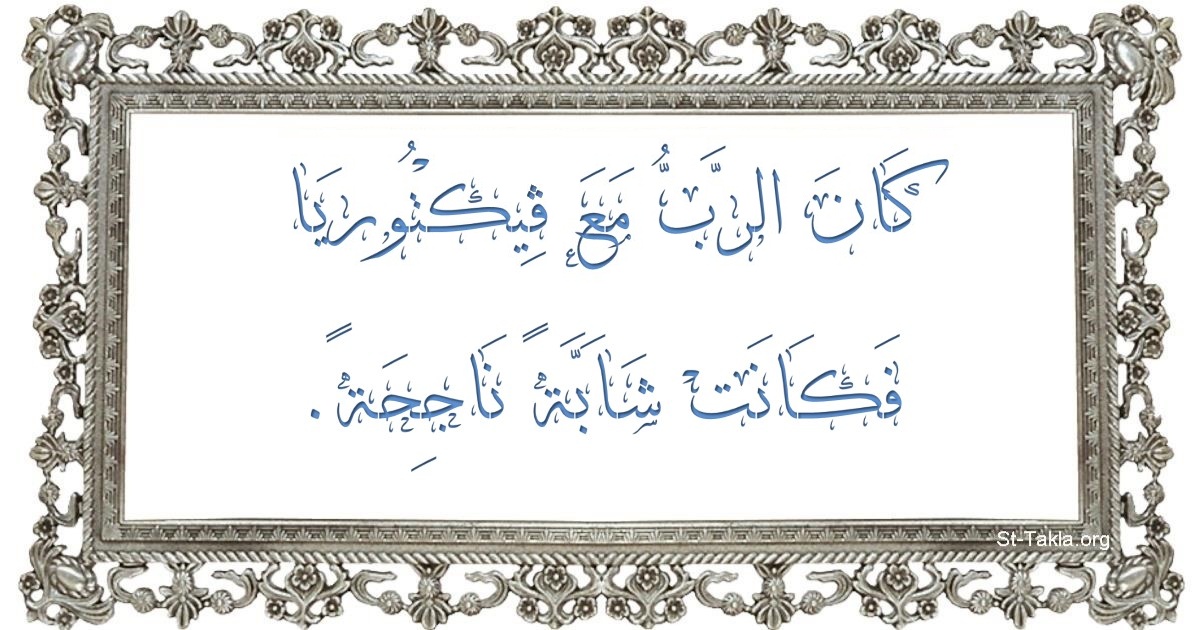 كَانَ الرَّبُّ مَعَ ڤِيكْتُورِيَا
فَكَانَتْ شَابَّةً نَاجِحَةً.
St-Takla.org